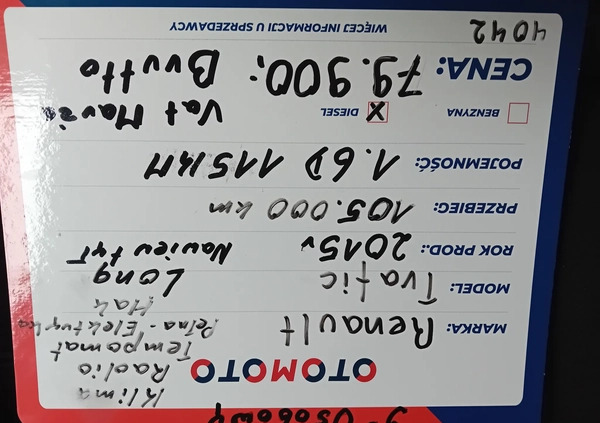 9-Osobowy
OTOMOTO
Klima
Radio
Tempomat
Pełna-Elektryka
Hak
MARKA: Renault
MODEL: Trafic Long
ROK PROD.: 2015r Nawiew tył
PRZEBIEG: 105.000 km
POJEMNOŚĆ: 1.6D 115KM
BENZYNA DIESEL X Vat Marża
CENA: 79.900,- Brutto
4042 WIĘCEJ INFORMACJI U SPRZEDAWCY